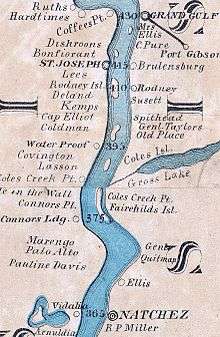 Ruths
Hardtimes
Coffees Pt.
430 GRAND GULF
Mrs
Ellis
C.Pure
Port Gibson
Dishroons
Bonfiorant
ST. JOSEPH 415 Brulensburg
Lees
Rodney Isl. 410 Rodney
Deland
Susett
Kemps
Cap Elliot
Spithead
Coldman
Genl Taylors
Old Place
Water Proof 395
Covington
Coles Isl.
Lasson
Coles Creek Pt.
Gross Lake
on the Wall
Coles Creek Pt.
Connors Pt.
Fairchilds Isl.
Connors Ldg. 375
Marengo
Palo Alto
Genl
Quitman
Pauline Davis
Ellis
Vidalia
365 NATCHEZ
R P Miller